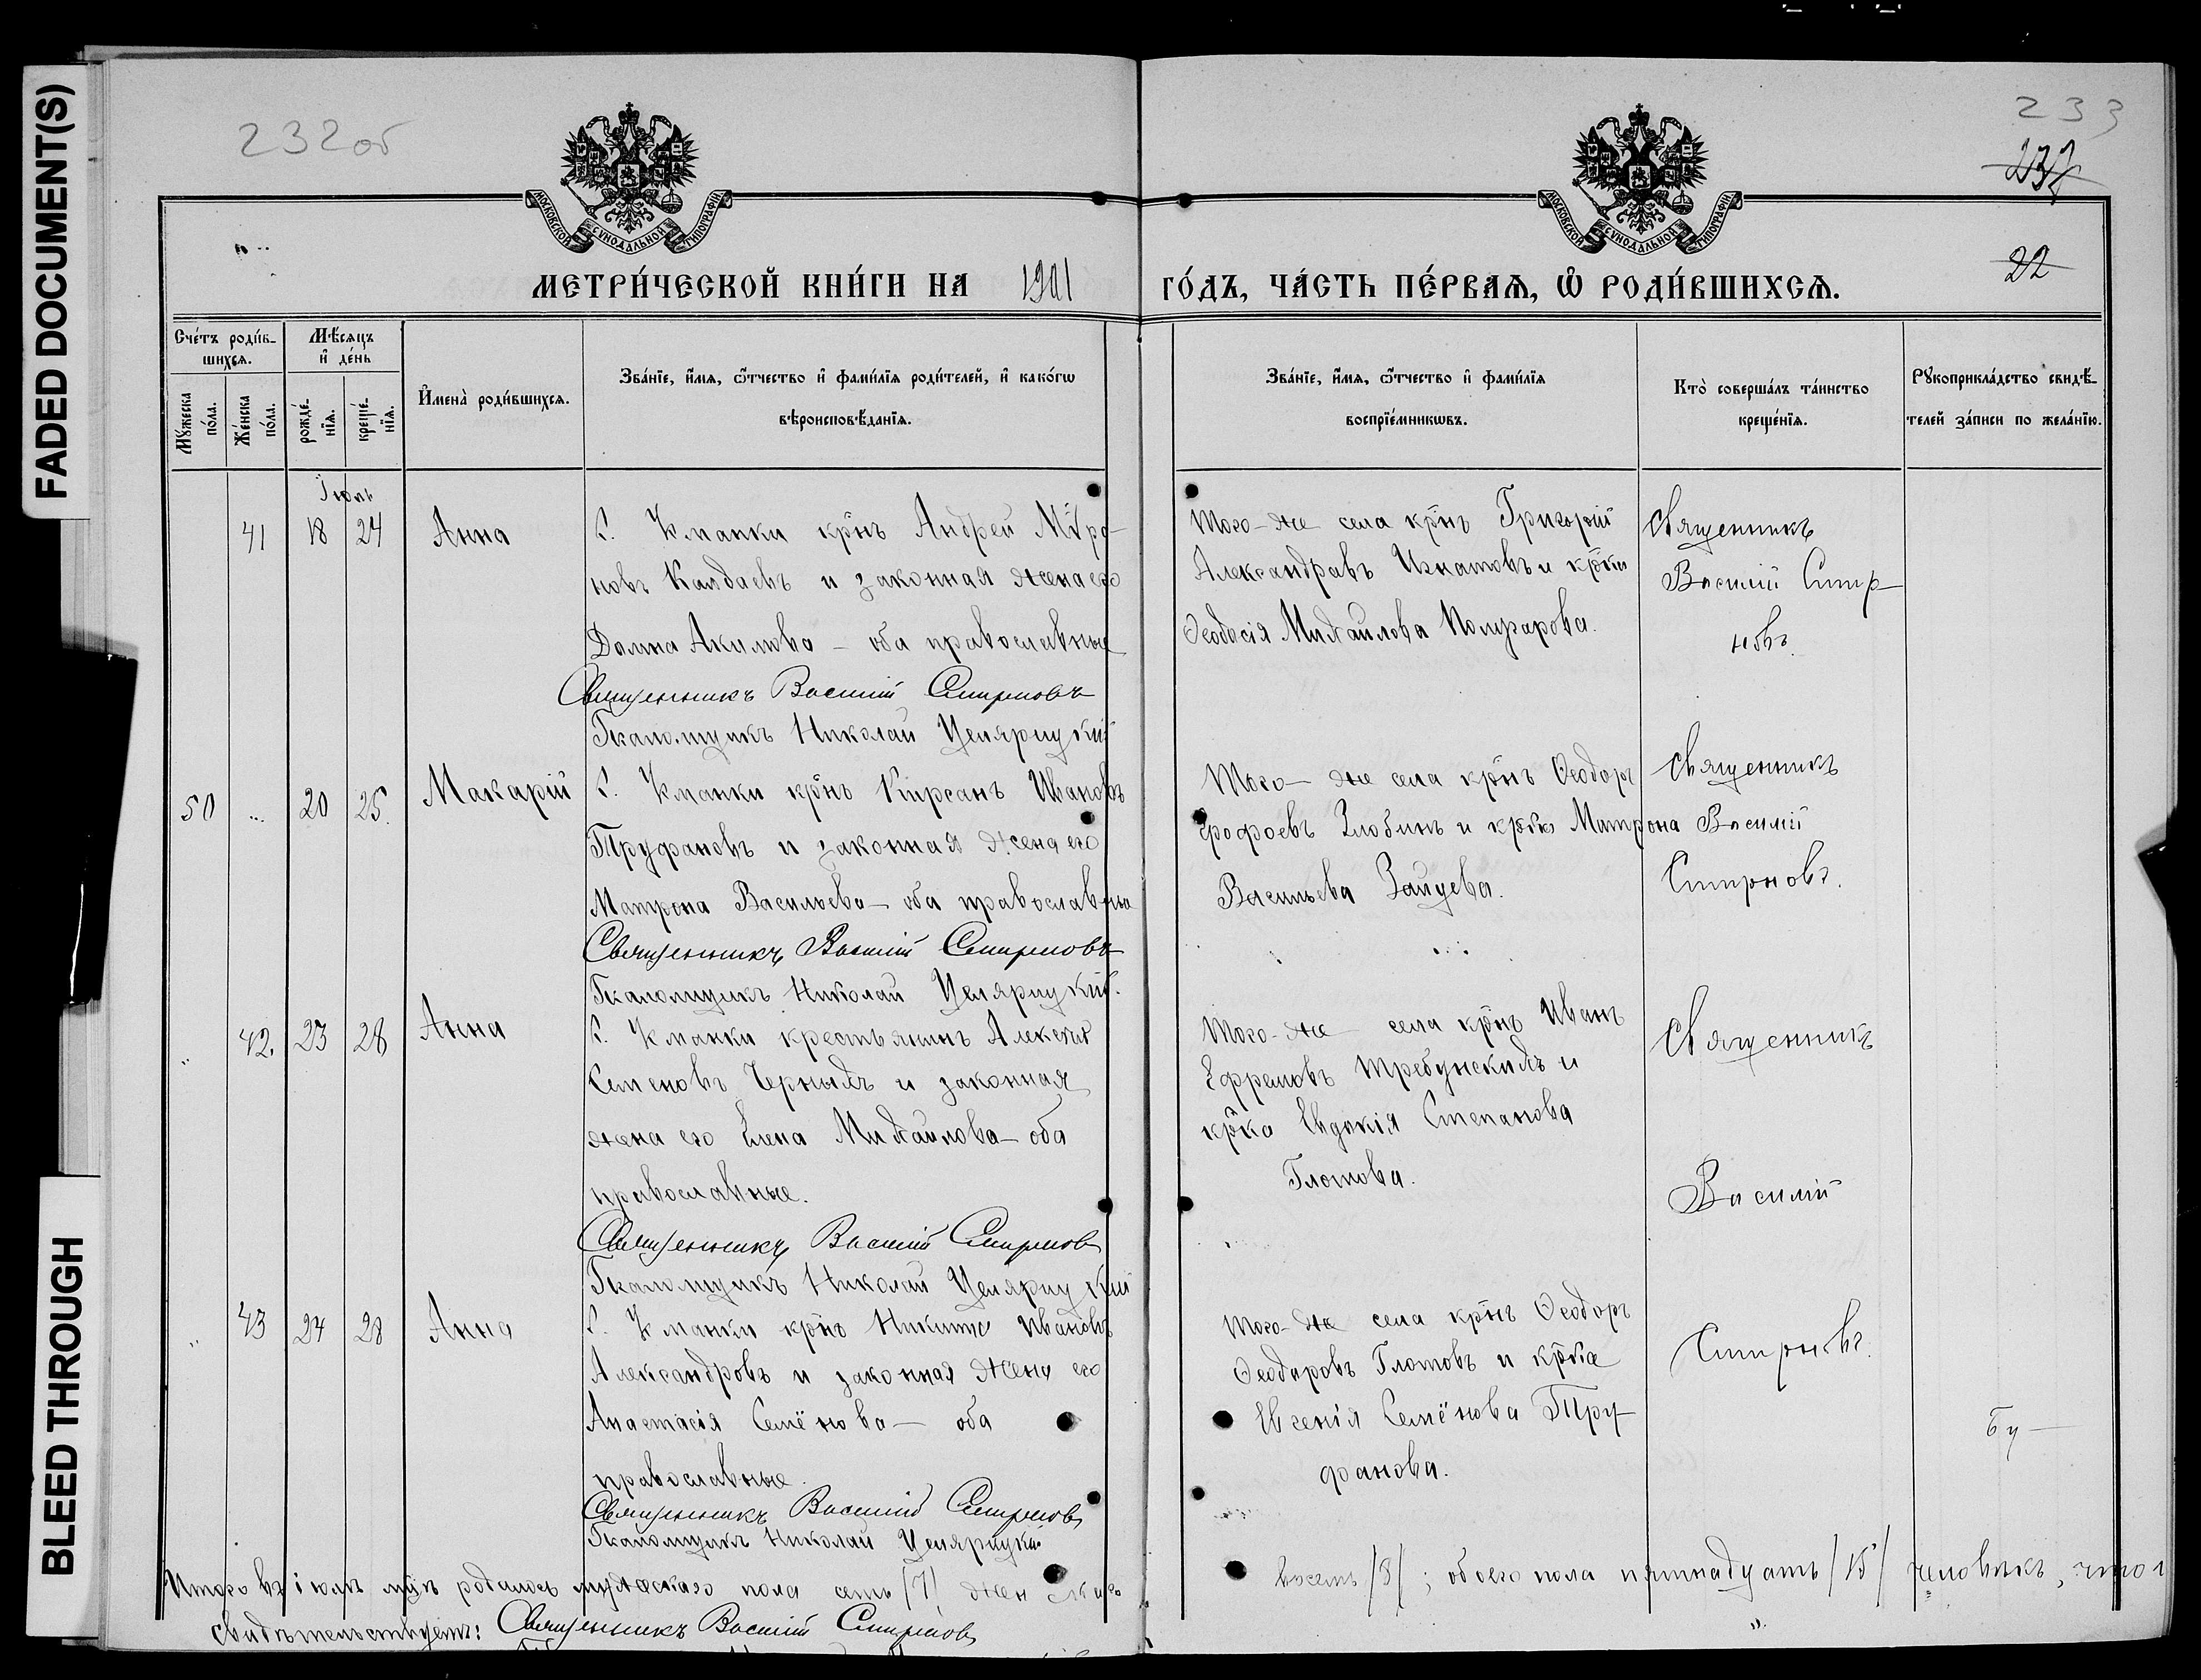 FADED DOCUMENT(S)
BLEED THROUGH
232об
233
22
МОСКОВСКОЙ СѴНОДАЛЬНОЙ ТИПОГРАФІИ
МОСКОВСКОЙ СѴНОДАЛЬНОЙ ТИПОГРАФІИ
МЕТРИ́ЧЕСКОЙ КНИ́ГИ НА 1901
ГО́ДЪ, ЧА́СТЬ ПЕ́РВАѦ, Ѡ РОДИ́ВШИХСѦ.
Сче́тъ роди́в-
шихсѧ.
Мꙋжеска
по́ла.
Же́нска
по́ла.
Мѣ́сѧцъ
и҆ де́нь
рожде́-
нїѧ.
креще́-
нїѧ.
И҆мена̀ роди́вшихсѧ.
Зва́нїе, и҆́мѧ, ѻ҆́тчество и҆ фами́лїѧ роди́телей, и҆ како́гѡ
вѣроисповѣ́данїѧ.
Зва́нїе, и҆́мѧ, ѻ҆́тчество и҆ фами́лїѧ
воспрїе́мникѡвъ.
Кто̀ соверша́лъ та́инство
креще́нїѧ.
Рꙋкоприкла́дство свидѣ́-
телей за́писи по жела́нїю.
Іюль
41 18 24 Анна
С. Уманки кр̃нъ Андрей Мѵро-
новъ Калдаевъ и законная жена его
Домна Акилова – оба православные
Священникъ Василій Смирновъ
Псаломщикъ Николай Целярицкій
Того-же села кр̃нъ Григорій
Александровъ Игнатовъ и кр̃ка
Ѳеодосія Михайлова
Священникъ
Василій Смир-
новъ.
50 ... 20 25. Макарій
С. Уманки кр̃нъ Кирсанъ Ивановъ
Труфановъ и законная жена его
Матрона Васильева – оба православны
Священникъ Василій Смирновъ
Псаломщикъ Николай Целярицкій.
Того-же села кр̃нъ Ѳеодоръ
Ерофеевъ Злобинъ и кр̃ка Матрона
Васильева Зайцева.
Священникъ
Василій
Смирновъ.
42. 23 28 Анна
С. Уманки крестьянинъ Алексѣй
Семеновъ Черныхъ и законная
жена его Елена Михайлова – оба
православные.
Священникъ Василій Смирновъ
Псаломщикъ Николай Целярицкій
Того-же села кр̃нъ Иванъ
Ефремовъ Требунскихъ и
кр̃ка Евдокія Степанова
Глотова.
Священникъ
Василій
Смирновъ.
43 24 28 Анна
С. Уманки кр̃нъ Никита Ивановъ
Александровъ и законная жена его
Анастасія Семёнова – оба
православные.
Священникъ Василій Смирновъ
Псаломщикъ Николай Целярицкій
Того-же села кр̃нъ Ѳеодоръ
Ѳеодоровъ Глотовъ и кр̃ка
Евгенія Семёнова Тру-
фанова.
Итого въ іюлѣ мц̃ѣ родилось мужескаго пола семь /7/ женскаго восемь /8/; обоего пола пятнадцать /15/ человѣкъ, что
свидѣтельствуемъ: Священникъ Василій Смирновъ